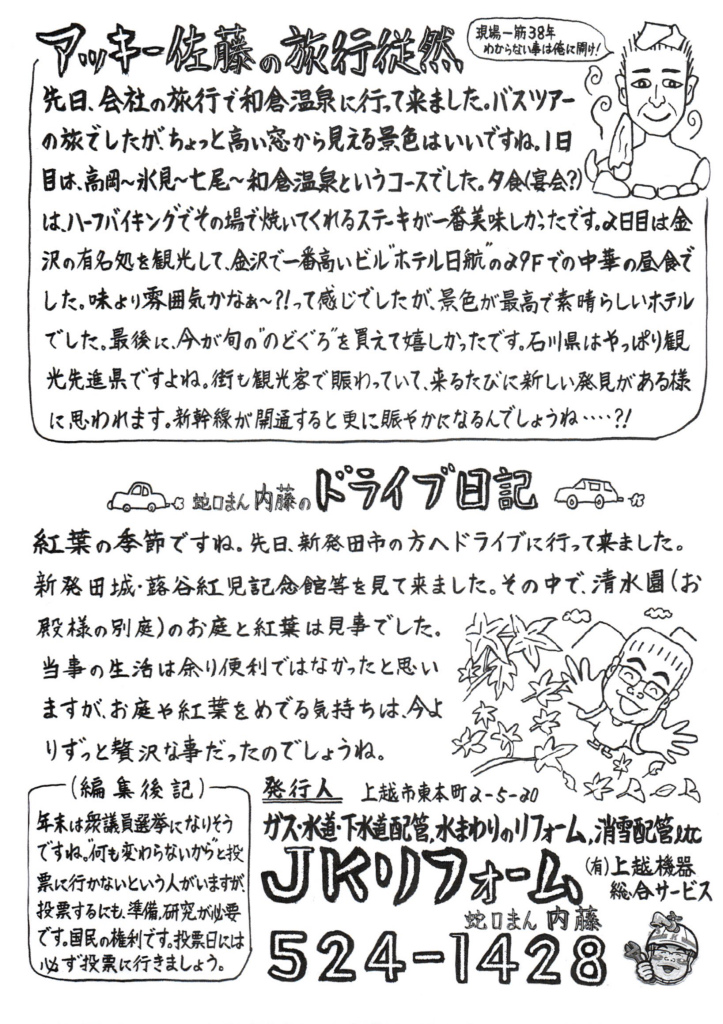 アッキー佐藤の旅行従然
現場一筋38年
わからない事は俺に聞け!
先日、会社の旅行で和倉温泉に行って来ました。バスツアー
の旅でしたが、ちょっと高い窓から見える景色はいいですね。1日
目は、高岡～氷見～七尾～和倉温泉というコースでした。夕食(宴会?)
は、ハーフバイキングでその場で焼いてくれるステーキが一番美味しかったです。2日目は金
沢の有名処を観光して、金沢で一番高いビル"ホテル日航"の29Fでの中華の昼食で
した。味より雰囲気かなぁ～?!って感じでしたが、景色が最高で素晴らしいホテル
でした。最後に、今が旬の"のどぐろ"を買えて嬉しかったです。石川県はやっぱり観
光先進県ですよね。街も観光客で賑わっていて、来るたびに新しい発見がある様
に思われます。新幹線が開通すると更に賑やかになるんでしょうね‥‥?!
蛇口まん内藤のドライブ日記
紅葉の季節ですね。先日、新発田市の方へドライブに行って来ました。
新発田城・蕗谷紅児記念館等を見て来ました。その中で、清水園(お
殿様の別庭)のお庭と紅葉は見事でした。
当事の生活は余り便利ではなかったと思い
ますが、お庭や紅葉をめでる気持ちは、今よ
りずっと贅沢な事だったのでしょうね。
(編集後記)
年末は衆議員選挙になりそう
ですね。"何も変わらないから"と投
票に行かないという人がいますが、
投票するにも、準備、研究が必要
です。国民の権利です。投票日には
必ず投票に行きましょう。
発行人 上越市東本町2-5-20
ガス・水道・下水道配管,水まわりのリフォーム,消雪配管etc
JKリフォーム
(有)上越機器
総合サービス
蛇口まん 内藤
524-1428